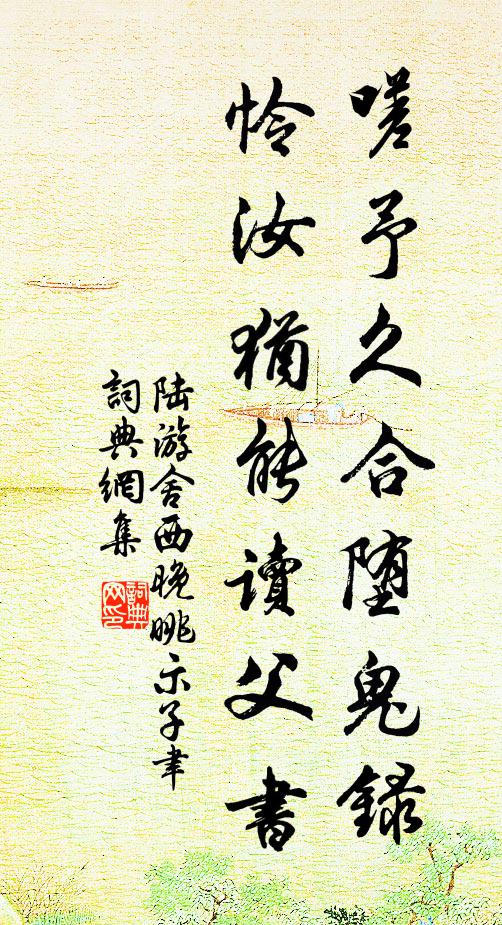 嗟予久合堕鬼録
怜汝猶能讀父書
陆游舍西晚眺示子聿
詞典網集
詞典网印